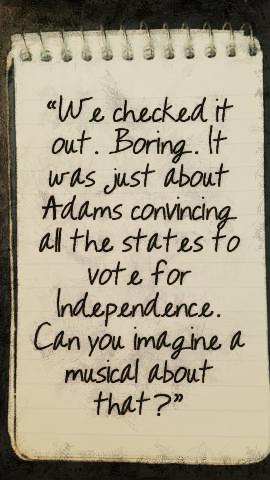 “We checked it
out. Boring. It
was just about
Adams convincing
all the states to
vote for
Independence.
Can you imagine a
musical about
that?”